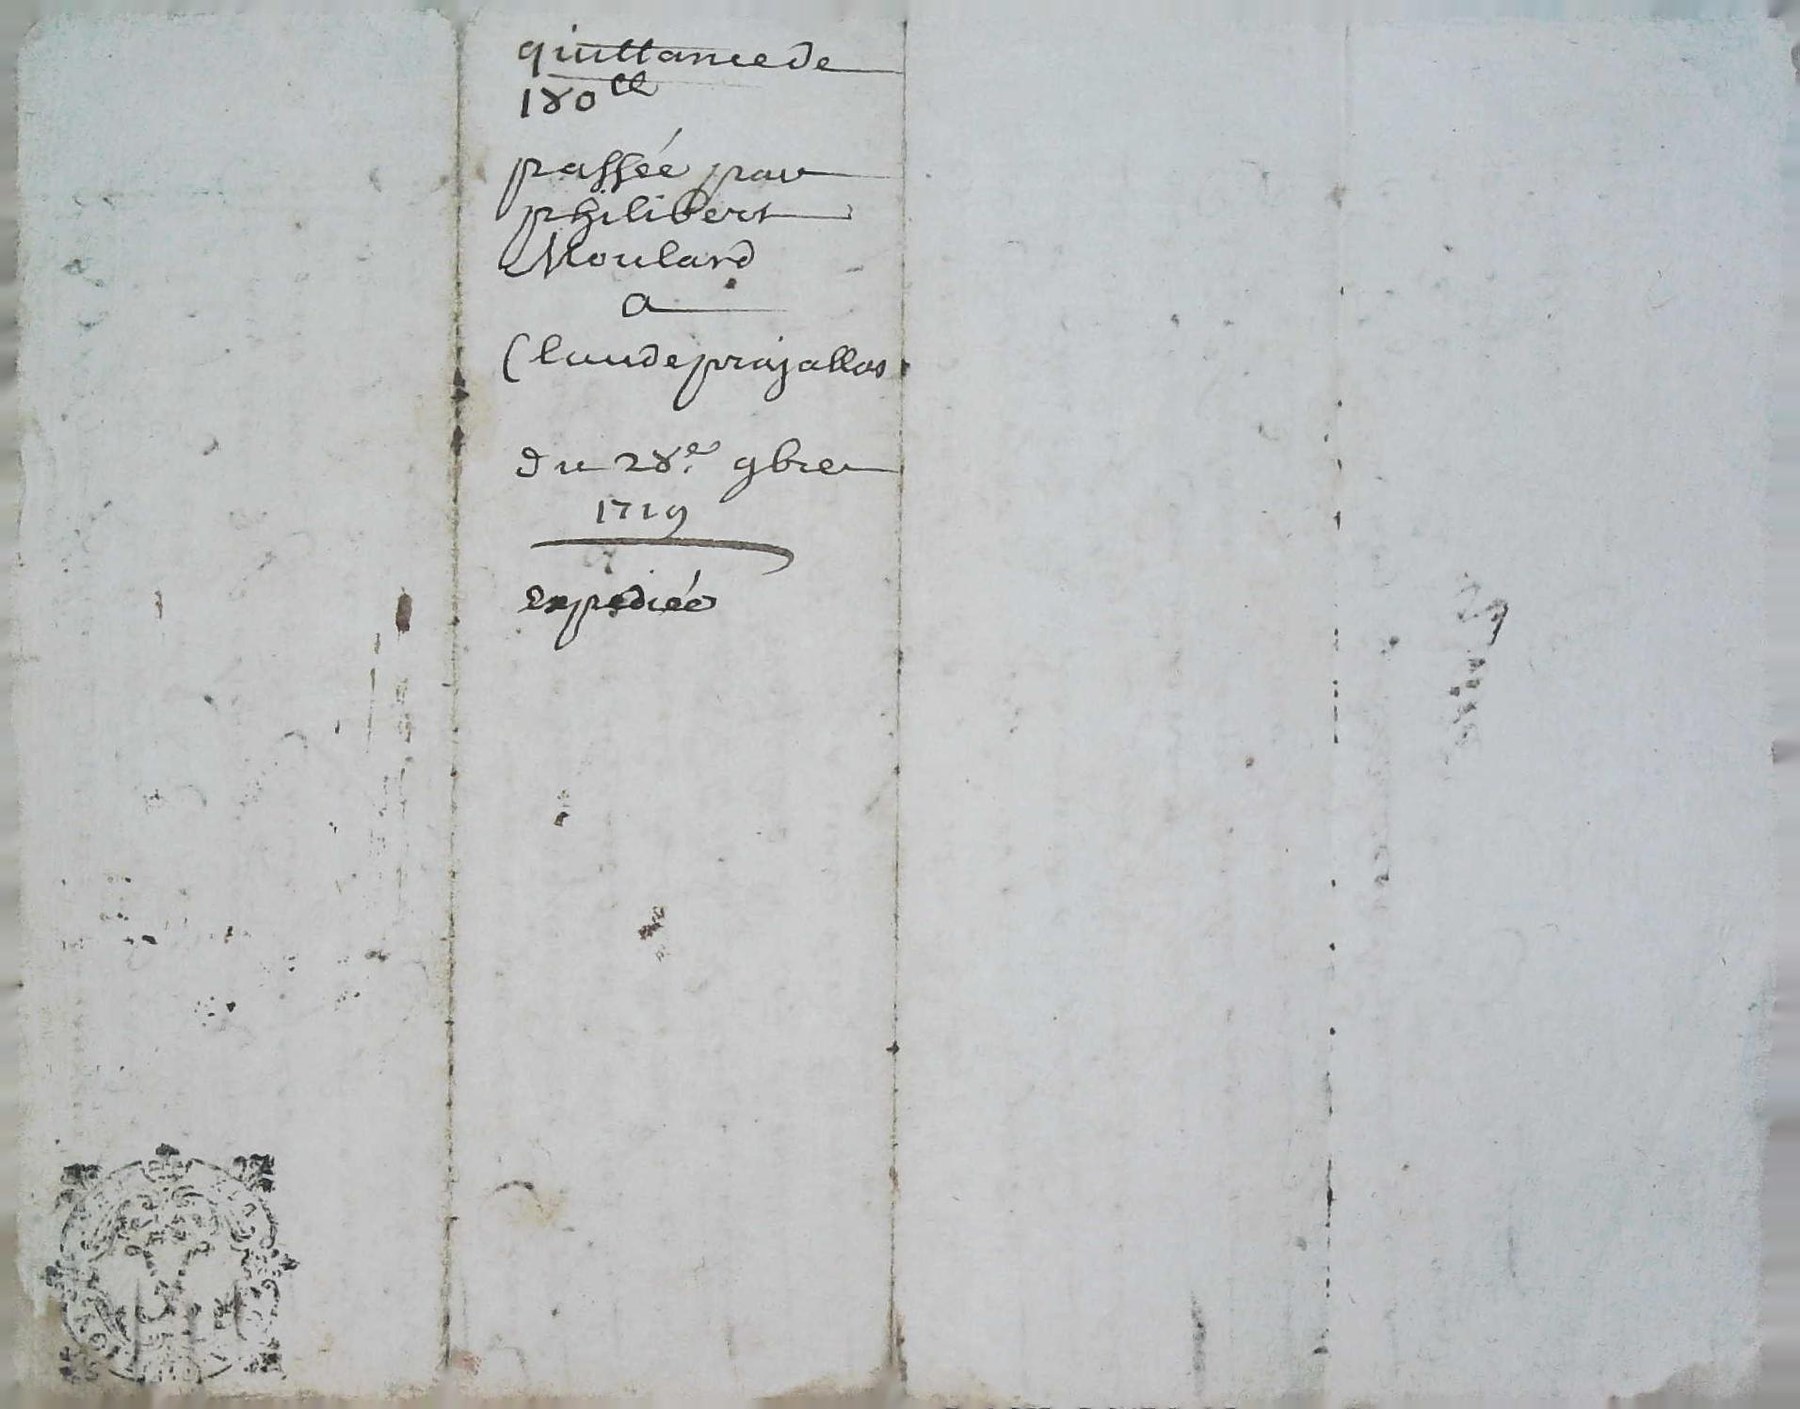 quittance de
180ll
passée par
philibert
Moulard
a
Claude prajallas
du 28e. 9bre
1719
expediée